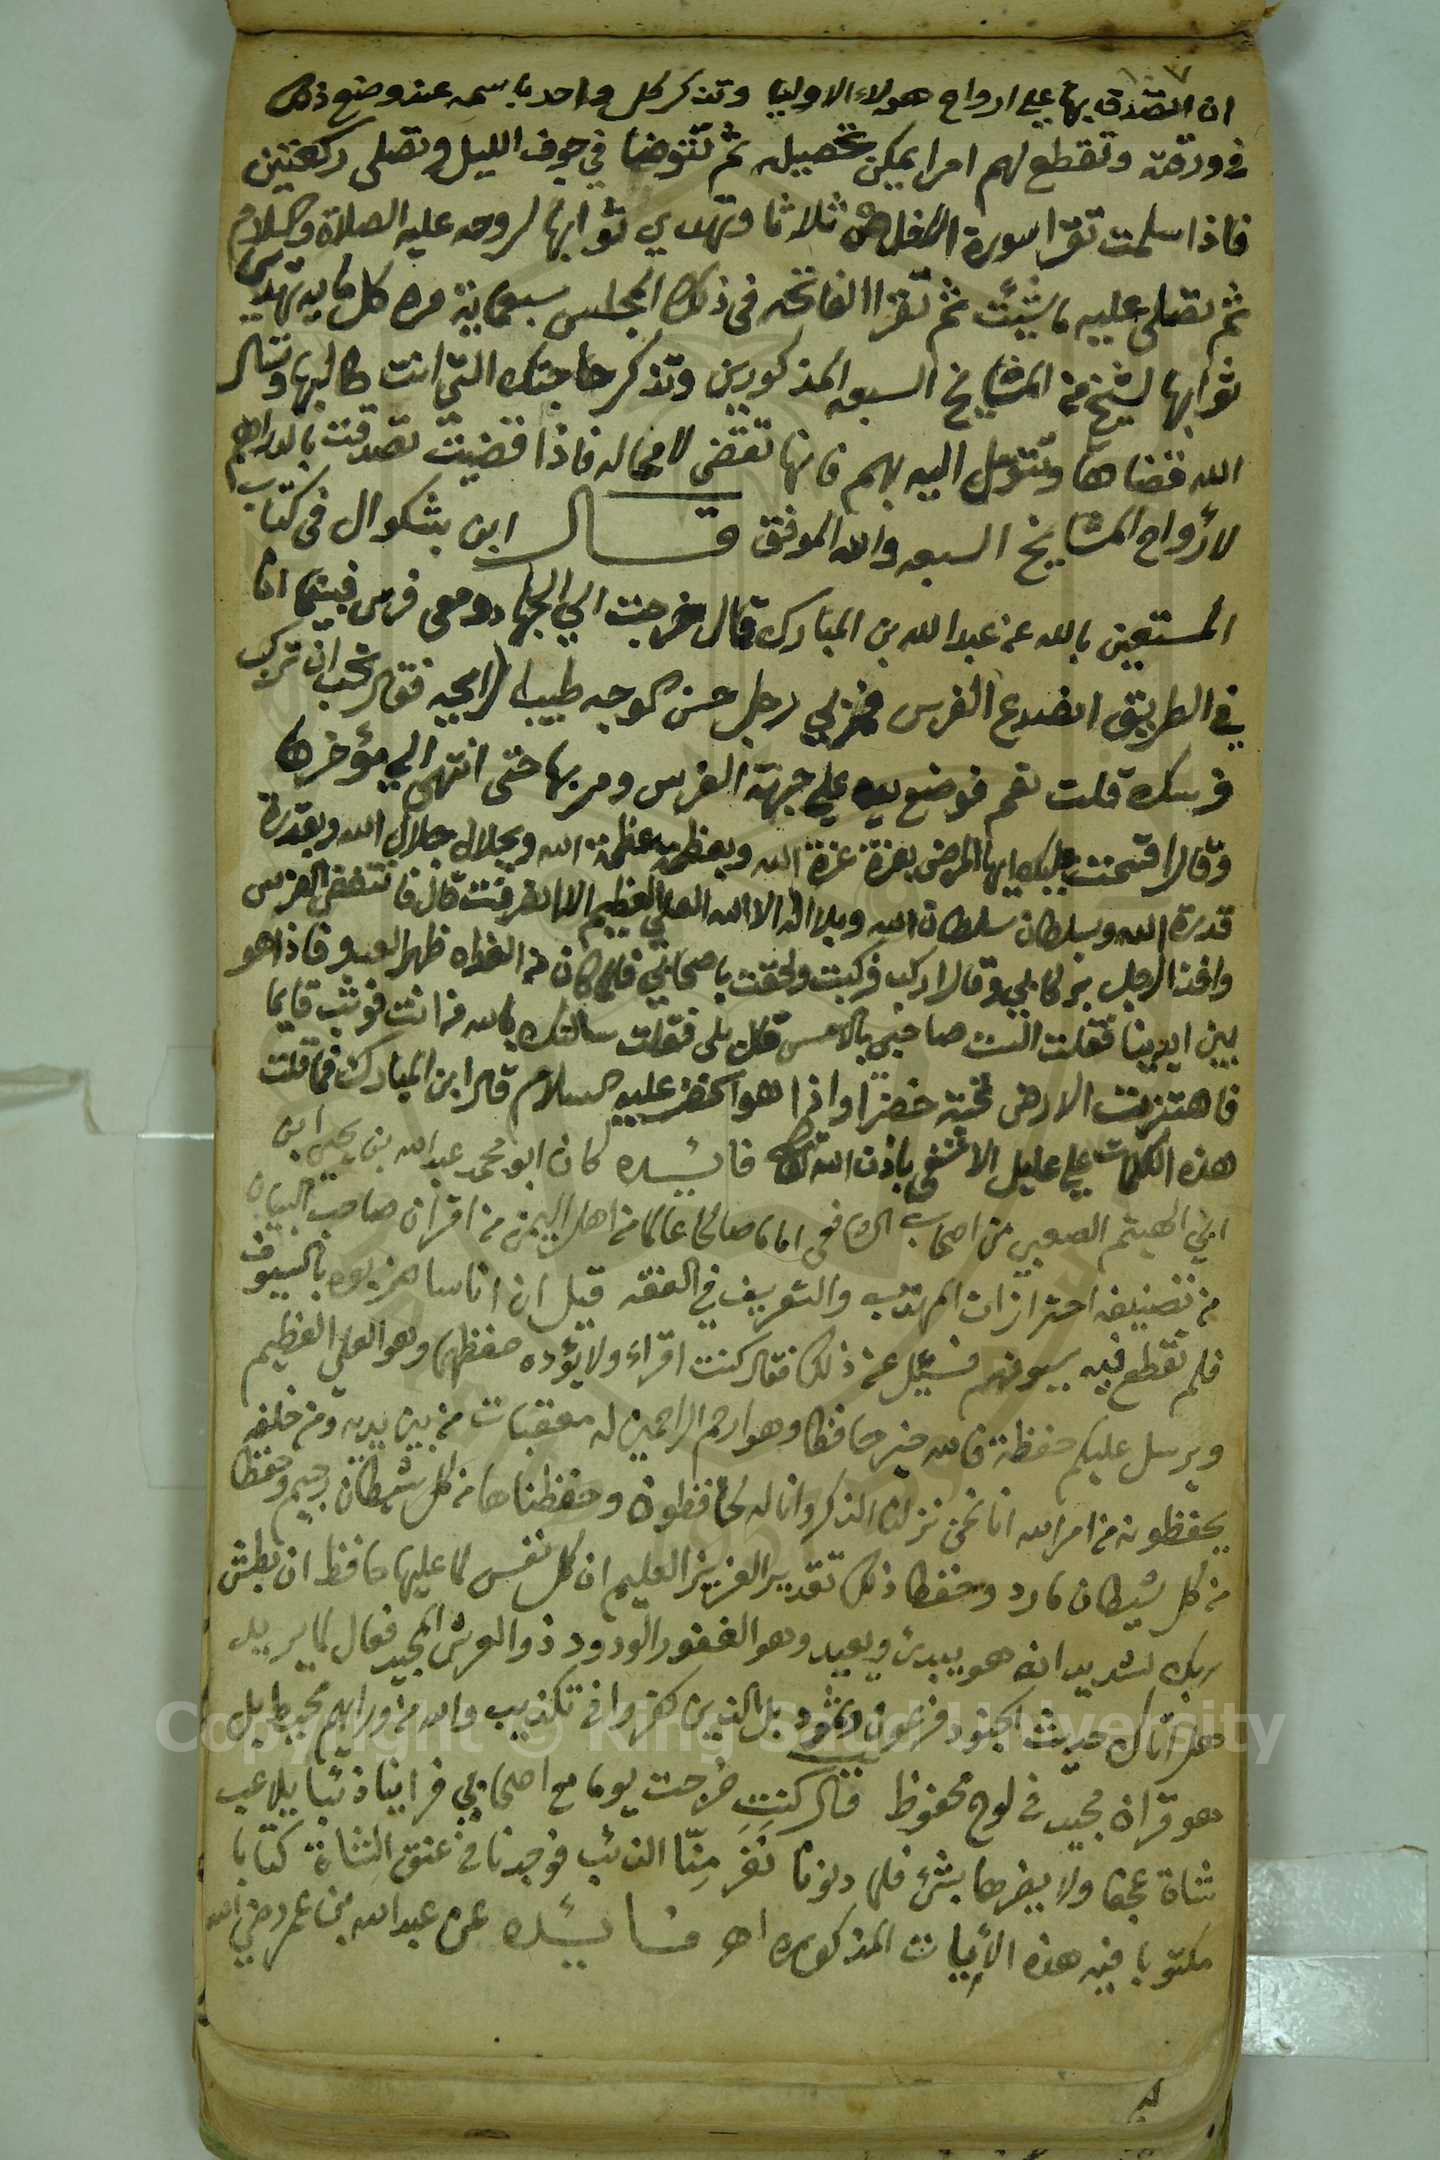 ان اتصدق بها على ارواح هولاء الاوليا وتذكر كل واحد باسمه عند وضع ذلك
في ورقته وتقطع لهم امرا يمكن تحصيله ثم تتوضا في جوف الليل وتصلى ركعتين
فاذا سلمت تقرا سورة الاخلاص ثلاثا وتهدي ثوابها لروحه عليه الصلاة والسلام
ثم تصلى عليه ما شئت ثم تقرا الفاتحه فى ذلك المجلس سبعماية مره كل مايه تهدى
ثوابها لشيخ من المشايخ السبعه المذكورين وتذكر حاجتك التى انت طالبها وتسال
الله قضاها وتتوسل اليه بهم فانها تقضى لا محاله فاذا قضيت تصدقت بالدراهم
لأرواح المشايخ السبعه والله الموفق قال ابن بشكوال فى كتاب
المستغيثين بالله عن عبد الله بن المبارك قال خرجت الي الجهاد ومعى فرس فبينما انا
في الطريق اذ صرع الفرس فمر بي رجل حسن الوجه طيب الرايحه فقال تحب ان تركب
فرسك قلت نعم فوضع يده على جبهة الفرس ومر بها حتى انتهى الي مؤخرها
وقال اقسمت عليك ايها المرض بعزة عزة الله وبعظمة عظمة الله وبجلال جلال الله وبقدرة
قدرة الله وسلطان سلطان الله وبلا اله الا الله العلي العظيم الا انصرفت قال فانتفض الفرس
واخذ الرجل بركابي وقال اركب فركبت ولحقت باصحابي فلما كان من الغداه ظهر العدو فاذا هو
بين ايدينا فقلت الست صاحبي بالامس قال بلى فقلت سالتك بالله من انت فوثب قايما
فاهتزت الارض تحته خضرا واذا هو الخضر عليه السلام قال ابن المبارك فما قلت
هذه الكلمات على عليل الا شفى باذن الله تعالى فايده كان ابو محمد عبد الله بن يحيى ابن
ابي الهيثم الصعبي من اصحاب الشافعى اماما صالحا عالما من اهل اليمن من اقران صاحب البيان
من تصنيفه احترازات المهذب والتعريف في الفقه قيل ان اناسا ضربوه بالسيوف
فلم تقطع فيه سيوفهم فسئل عن ذلك فقال كنت اقراء ولا يؤده حفظهما وهو العلي العظيم
ويرسل عليكم حفظة فالله خير حافظا وهو ارحم الراحمين له معقبات من بين يديه ومن خلفه
يحفظونه من امر الله انا نحن نزلنا الذكر وانا له لحافظون وحفظناها من كل شيطان رجيم وحفظا
من كل شيطان مارد وحفظا ذلك تقدير العزيز العليم ان كل نفس لما عليها حافظ ان بطش
ربك لشديد انه هو يبدئ ويعيد وهو الغفور الودود ذو العرش المجيد فعال لما يريد
هل اتاك حديث الجنود فرعون وثمود بل الذين كفروا في تكذيب والله من ورايهم محيط بل
هو قران مجيد في لوح محفوظ قال كنت خرجت يوما مع اصحابي فراينا ذئبا يلاعب
شاة عجفا ولا يضرها بشئ فلما دنونا نَفَرَ مِنّا الذئب فوجدنا في عنق الشاة كتابا
مكتوبا فيه هذه الأيات المذكوره اهـ فايده عن عبد الله بن عمر رضي الله
Copyright © King Saud University